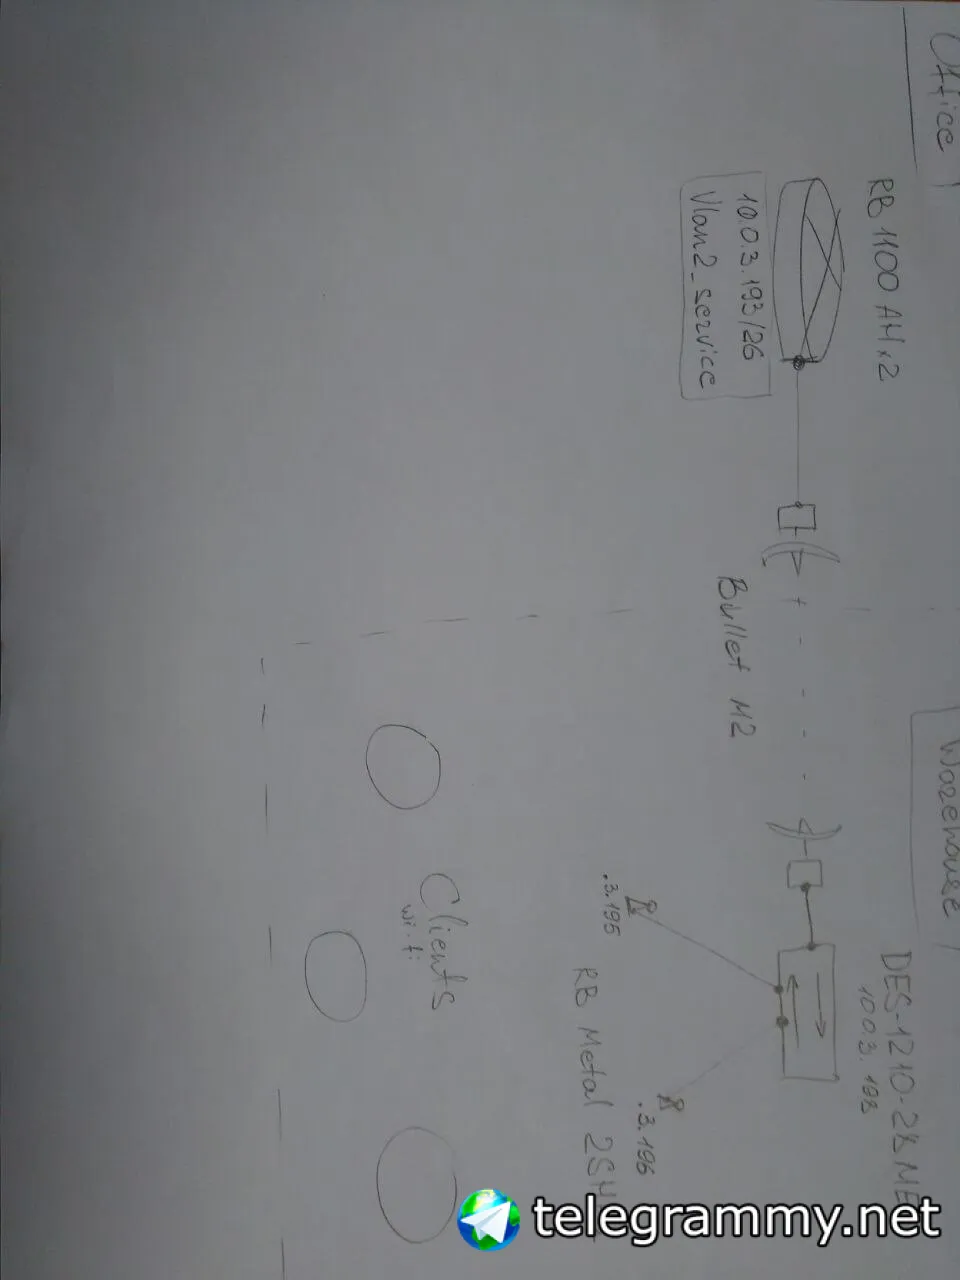 Office
RB 1100 AHx2
10.0.3.193/26
Vlan2_service
Bullet M2
Warehouse
DES-1210-28ME
10.0.3.198
.3.195
.3.196
RB Metal 2SH
Clients
wi-fi
telegrammy.net